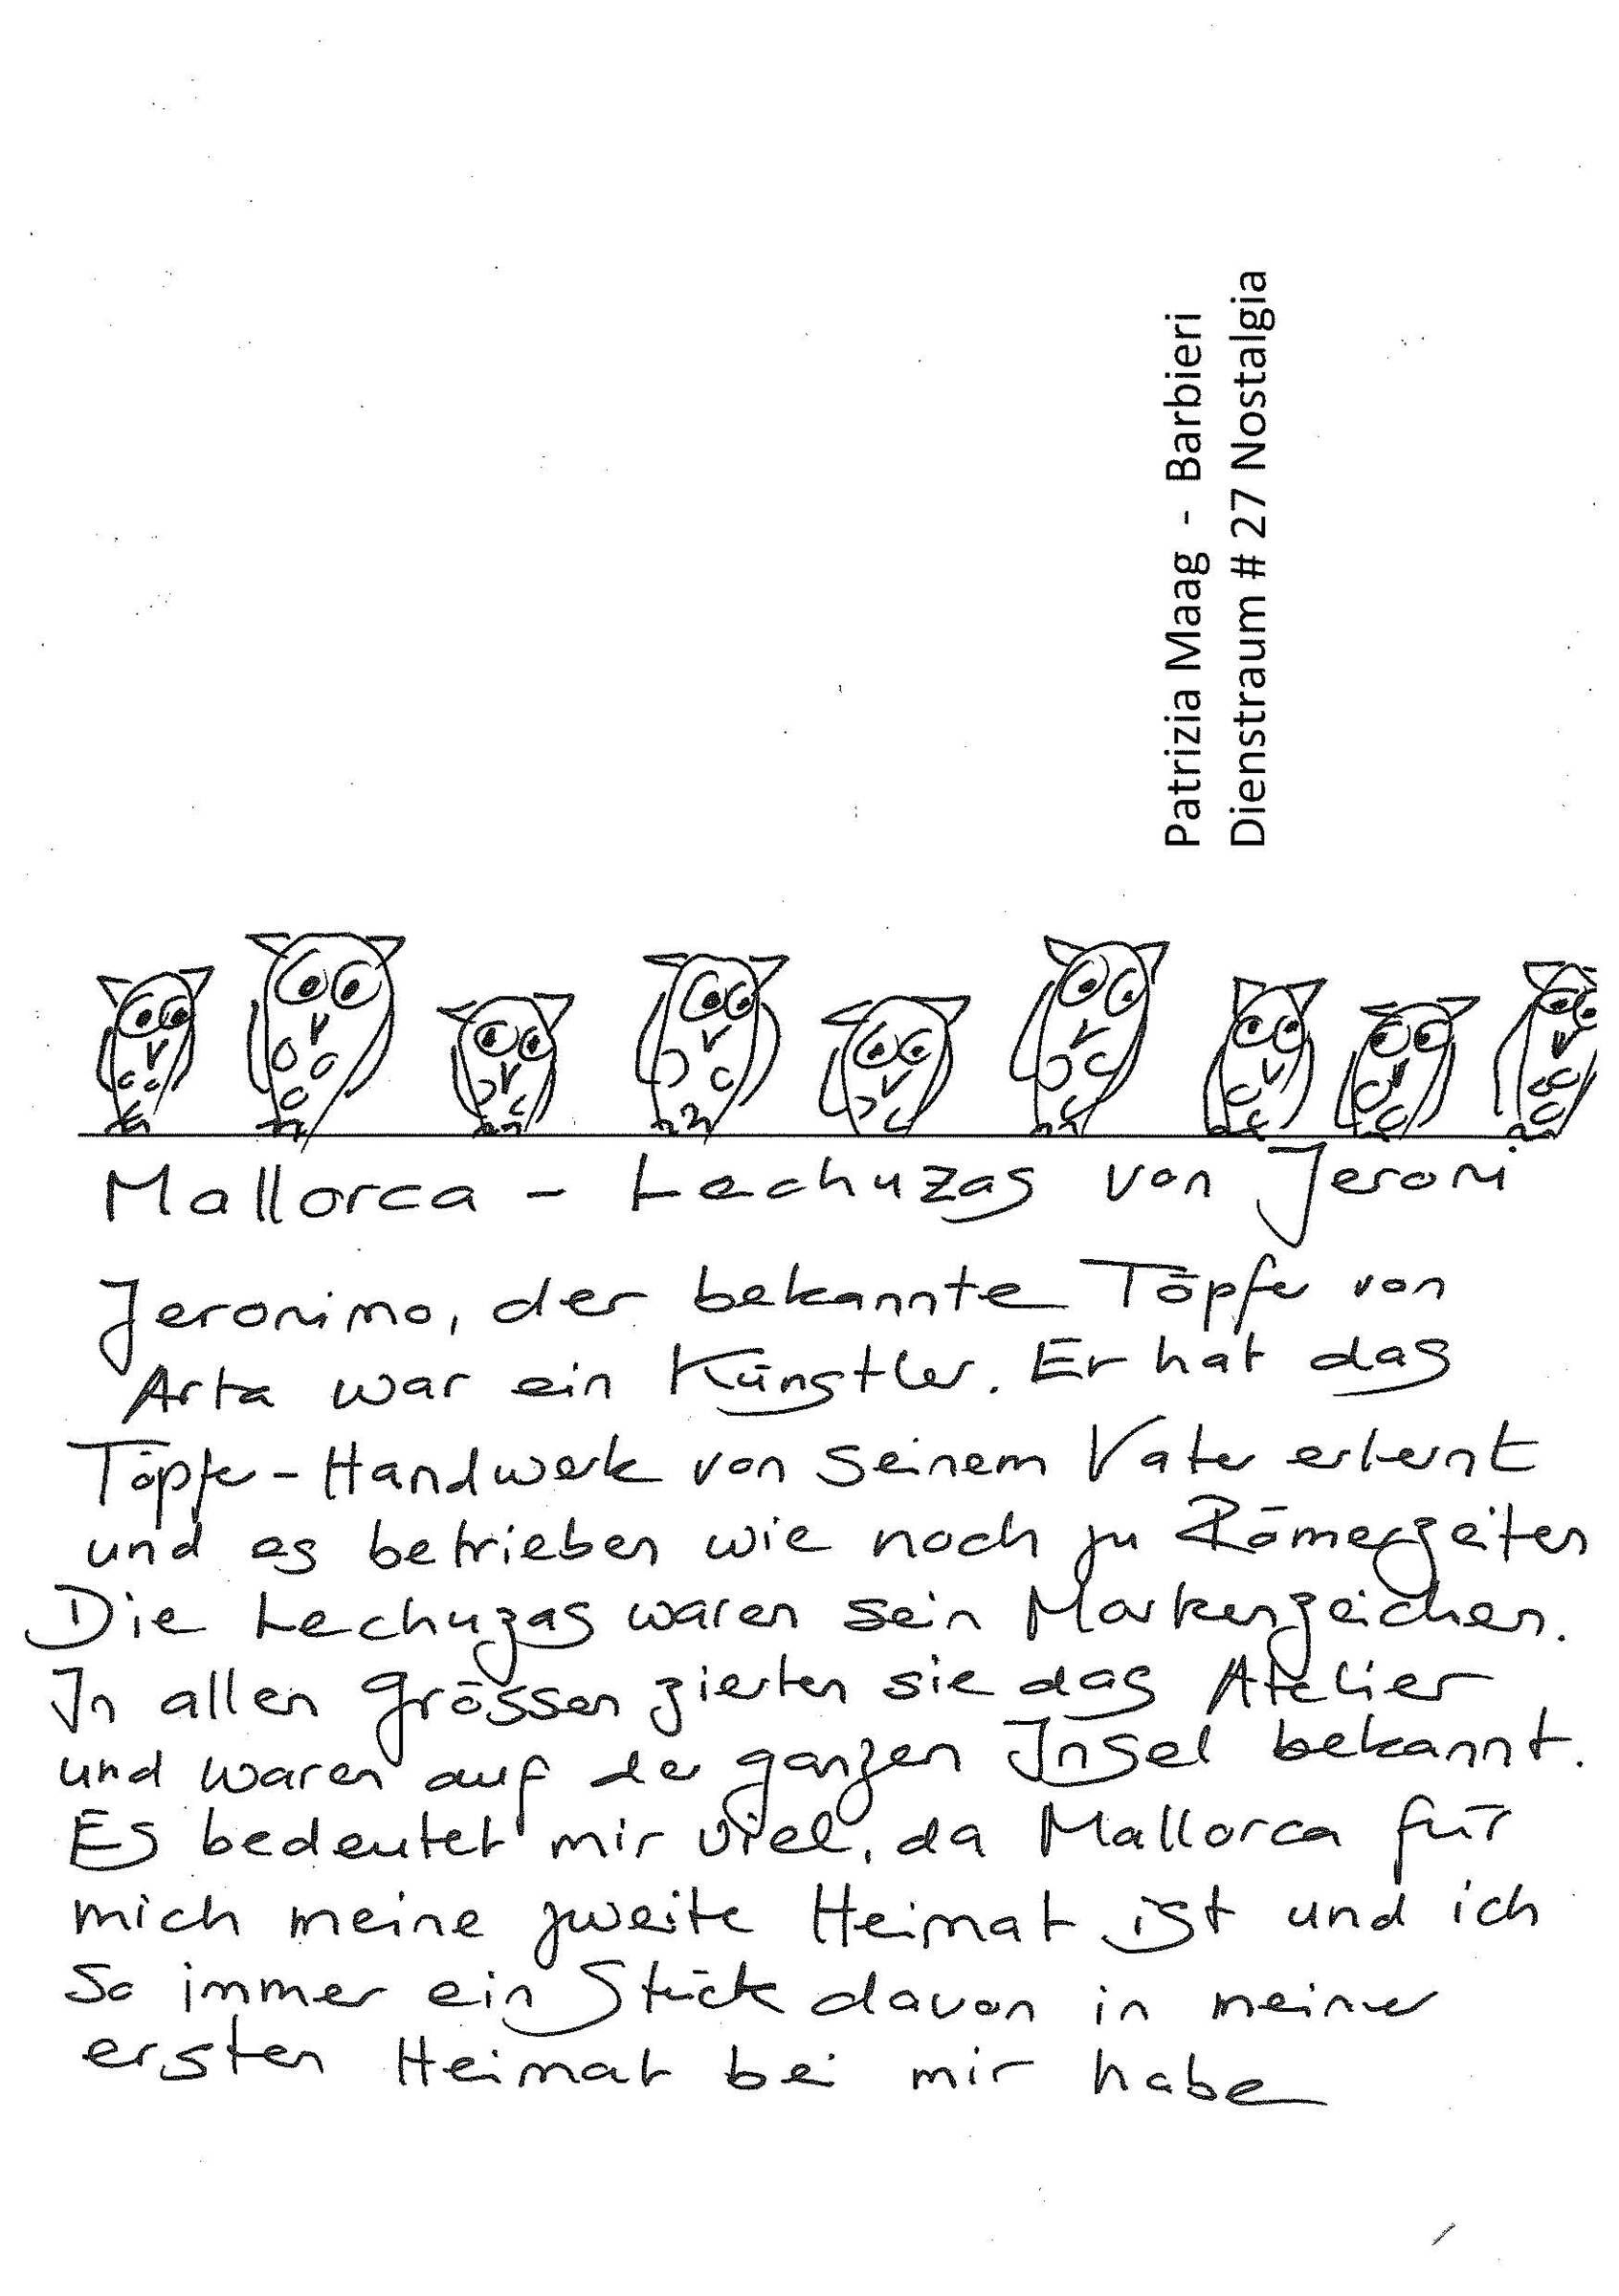 Patrizia Maag - Barbieri
Dienstraum # 27 Nostalgia
Mallorca - Lechuzas von Jeroni
Jeronimo, der bekannte Töpfer von
Arta war ein Künstler. Er hat das
Töpfer-Handwerk von seinem Vater erlernt
und es betrieben wie noch zu Römerzeiten
Die Lechuzas waren sein Markenzeichen.
In allen Grössen zierten sie das Atelier
und waren auf der ganzen Insel bekannt.
Es bedeutet mir viel, da Mallorca für
mich meine zweite Heimat ist und ich
so immer ein Stück davon in meiner
ersten Heimat bei mir habe